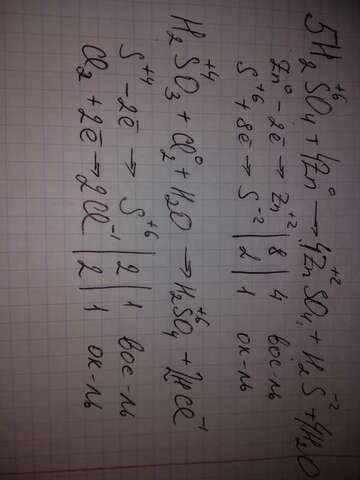 5H₂S⁺⁶O₄ + 4Zn⁰ → 4Zn⁺²SO₄ + H₂S⁻² + 4H₂O
Zn⁰ - 2ē → Zn⁺² | 8 | 4 вос-ль
S⁺⁶ + 8ē → S⁻² | 2 | 1 ок-ль
H₂S⁺⁴O₃ + Cl₂⁰ + H₂O → H₂S⁺⁶O₄ + 2HCl⁻¹
S⁺⁴ - 2ē → S⁺⁶ | 2 | 1 вос-ль
Cl₂ + 2ē → 2Cl⁻¹ | 2 | 1 ок-ль